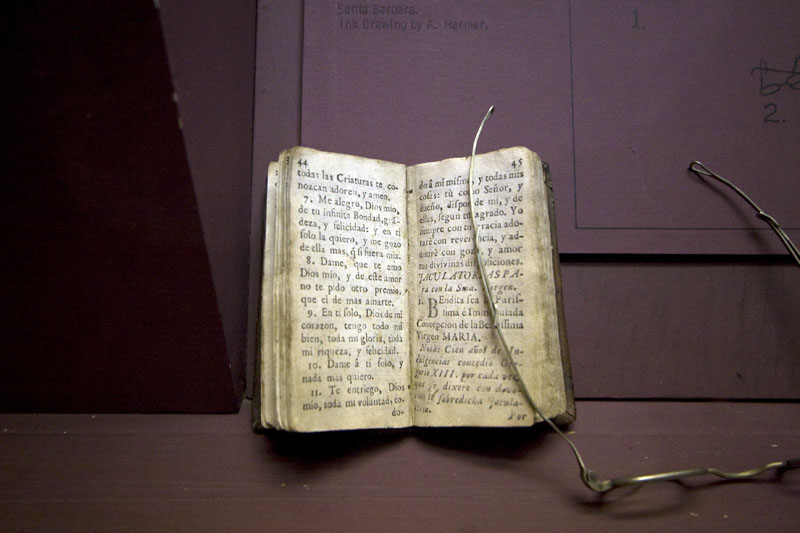 Santa Barbara.
Ink Drawing by A. Harmer.
1.
2.
44
todas las Criaturas te co-
nozcan adoren, y amen.
7. Me alegro, Dios mio,
de tu infinita Bondad, grã-
deza, y felicidad: y en ti
solo la quiero, y me gozo
de ella mas, q̃ si fuera mia.
8. Dame, que te amo
Dios mio, y de este amor
no te pido otro premio,
que el de mas amarte.
9. En ti solo, Dios de mi
corazon, tengo todo mi
bien, toda mi gloria, toda
mi riqueza, y felicidad.
10. Dame á ti solo, y
nada mas quiero.
11. Te entriego, Dios
mio, toda mi voluntad, to-
do-
45
do á mi mismo, y todas mis
cosas: tù como Señor, y
dueño, dispon de mi, y de
ellas, segun tu agrado. Yo
siempre con tu gracia ado-
raré con reverencia, y ad-
mitiré con gozo, y amor
tus divinas disposiciones.
JACULATORIAS PA-
ra con la Sma. Virgen.
1. BEndita sea la Purís-
sima é Immaculada
Concepcion de la Beatissima
Virgen MARIA.
Nota: Cien años de In-
dulgencias concedió Gre-
gorio XIII. por cada vez
que se dixere con devo-
cion la sobredicha Jacula-
toria.
Por